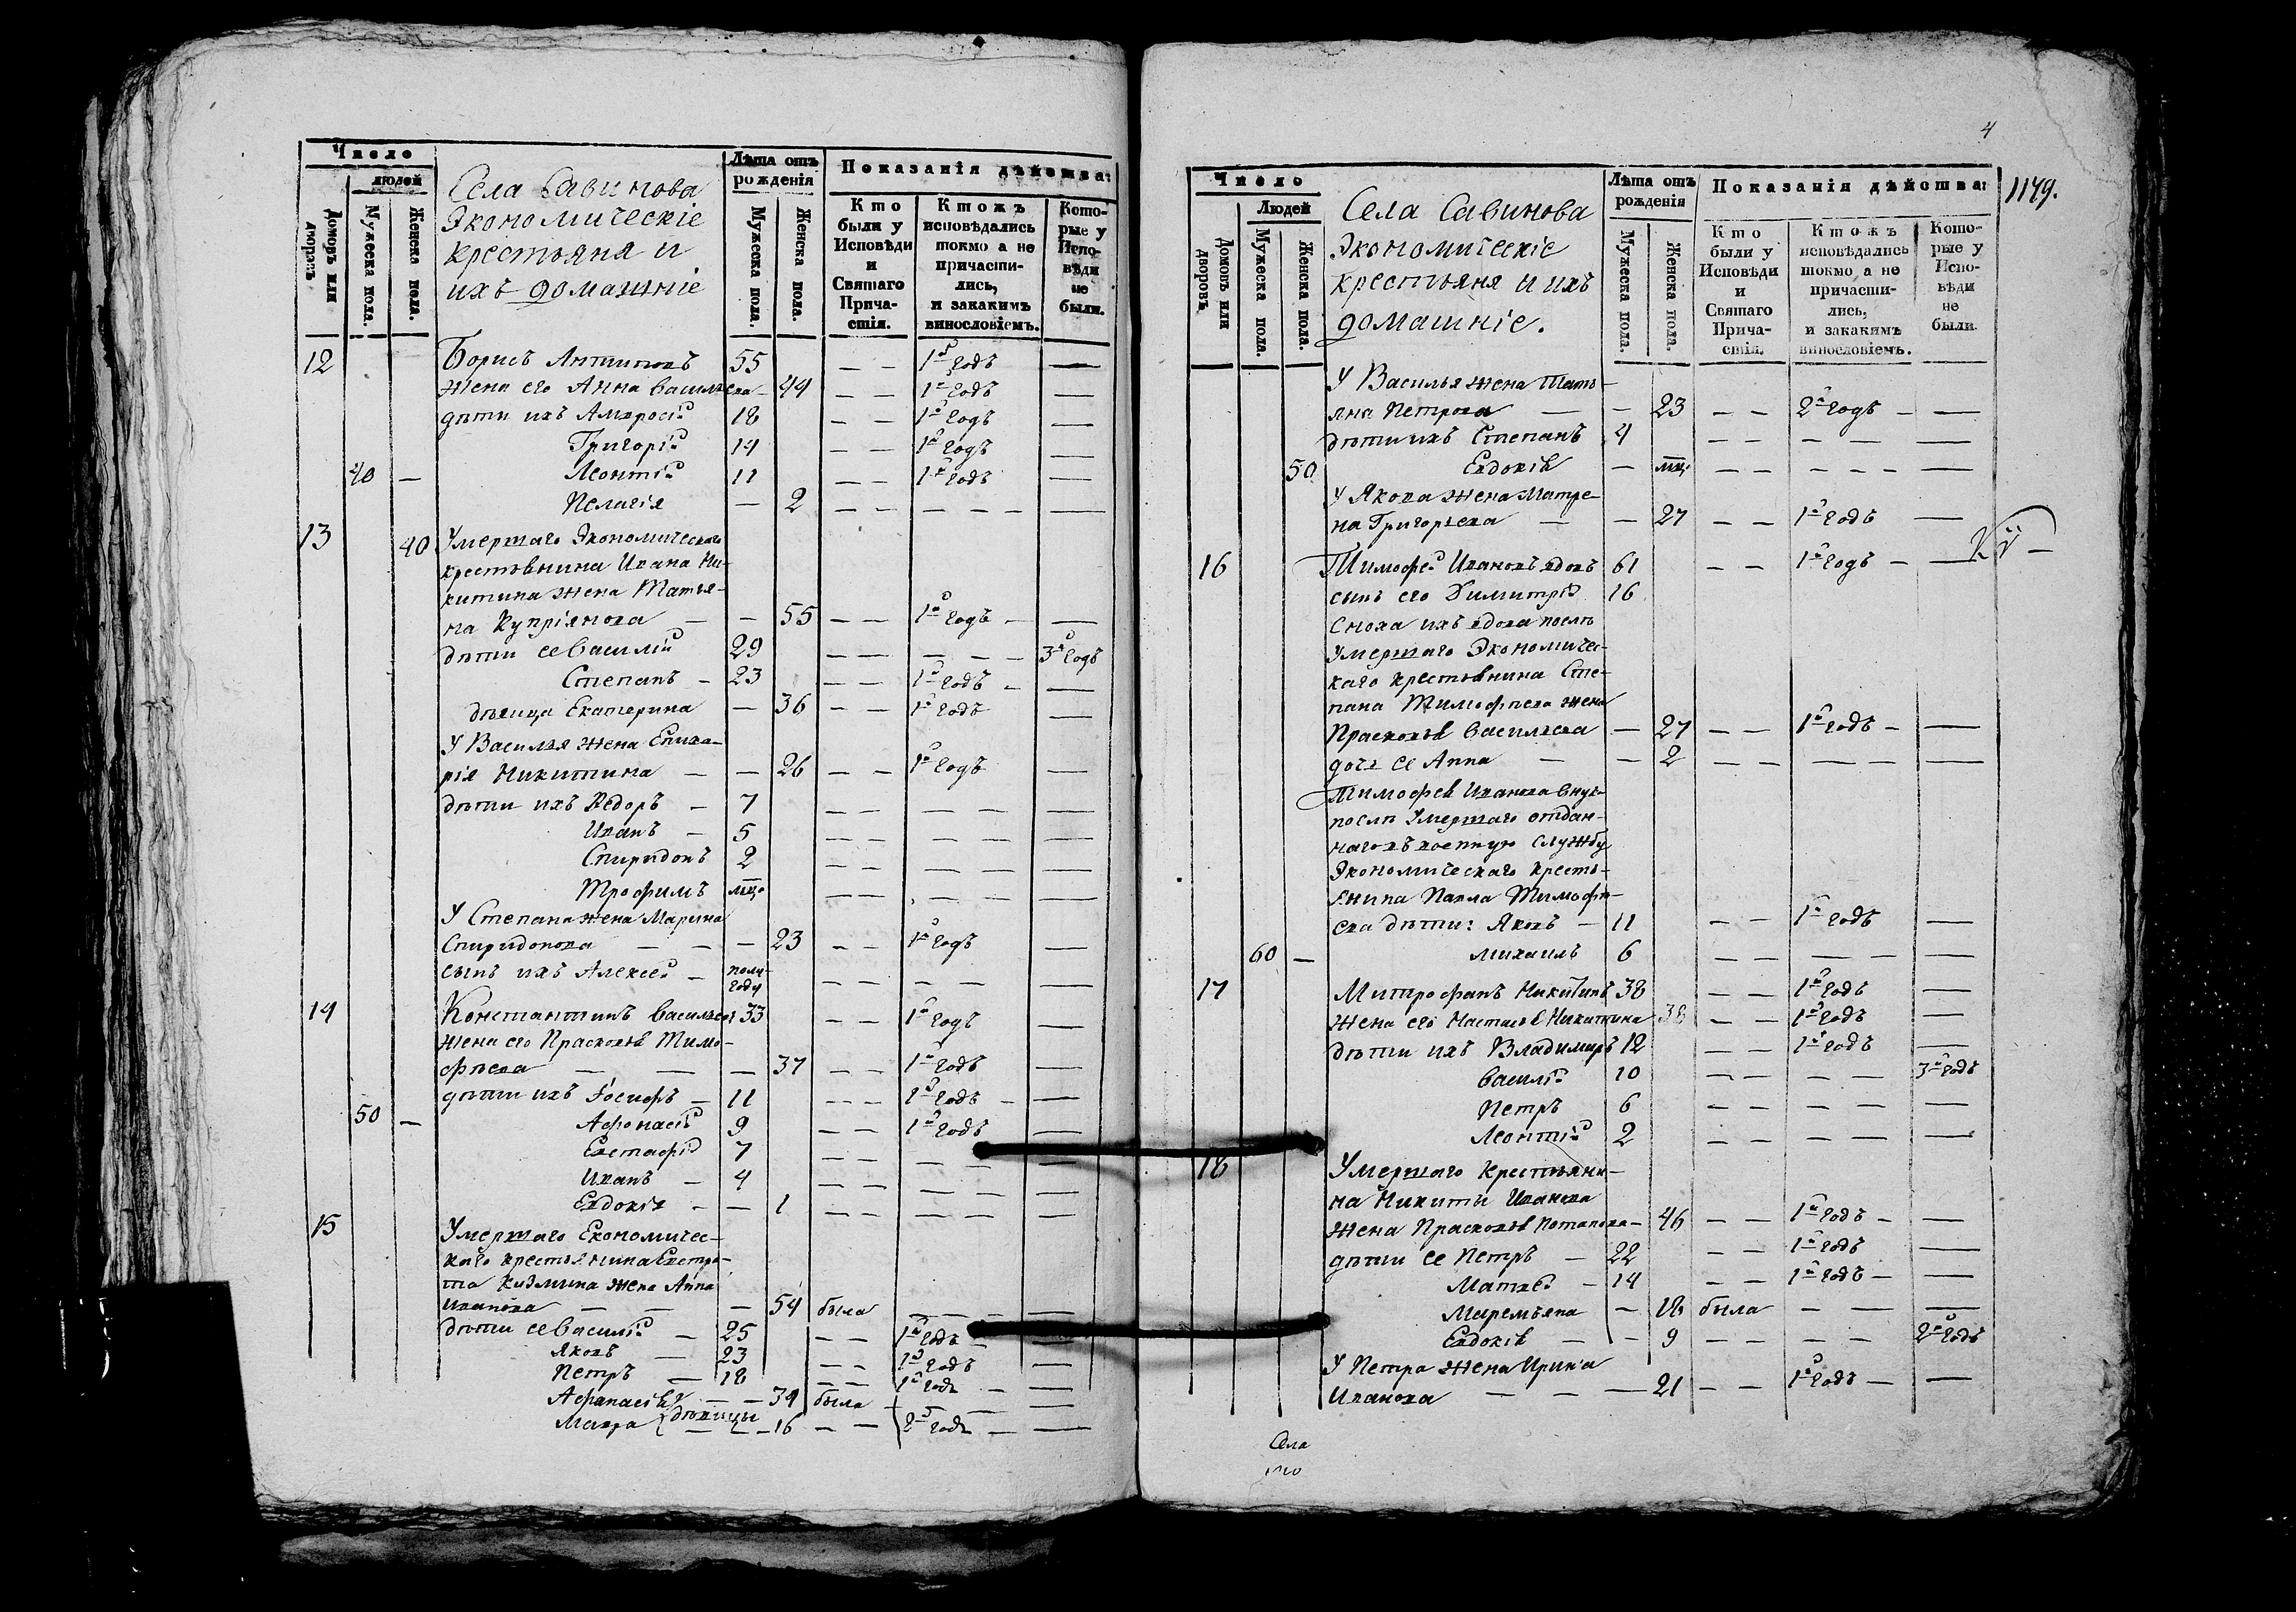 Число
людей
Домовъ или дворовъ
Мужеска пола.
Женска пола.
Села Савинова
Экономическіе
крестьяня и
ихъ домашніе
Лѣта отъ рожденія
Мужеска пола.
Женска пола.
Показанія дѣйства:
Кто были у Исповѣди и Святаго Причастія.
Ктожъ исповѣдались токмо а не причастились, и закакимъ винословіемъ.
Которые у Исповѣди не были.
12 Борисъ Антиповъ 55 — — 1й годъ —
жена его Анна Васильева — 44 — — 1й годъ —
дѣти ихъ Амвросій 18 — — 1й годъ —
Григорій 14 — — 1й годъ —
40 — Леонтій 11 — — 1й годъ —
Пелагія — 2 — — — — — —
13 40 Умершаго Экономическаго
крестьянина Ивана Ни-
китина жена Татья-
на Купріянова — — 55 — — 1й годъ — —
дѣти ее Василій 29 — — — — — 3й годъ
Степанъ — 23 — — 1й годъ — —
дѣвица Екатерина — 36 — — 1й годъ —
У Василья жена Епиха-
рія Никитина — — 26 — — 1й годъ —
дѣти ихъ Ѳедоръ — 7 — — — — —
Иванъ — 5 — — — — —
Спиридонъ 2 — — — — —
Трофимъ мцо — — — — —
У Степана жена Марина
Спиридонова — — — 23 — — 1й годъ —
сынъ ихъ Алексей — полу-
году — — — — —
14 Константинъ Васильевъ 33 — — 1й годъ —
жена его Прасковья Тимо-
фѣева — — — 37 — — 1й годъ —
дѣти ихъ Іосифъ — 11 — — 1й годъ — —
50 — Афонасій 9 — — 1й годъ —
Евстафій 7 — — — — —
Иванъ — 4 — — — — —
Евдокія — — 1 — — — — —
15 Умершаго Економичес-
каго крестьянина Евстра-
та Кузмина жена Анна
Иванова — — — 54 была — — —
дѣти ее Василій — 25 — — 1й годъ —
Яковъ — 23 — — 1й годъ —
Петръ — 18 — — 1й годъ — —
Афанасія — — 34 была — — —
дѣвицы
Мавра — — 16 — — 2й годъ — —
4
1149.
Число
Людей
Домовъ или дворовъ.
Мужеска пола.
Женска пола.
Села Савинова
Экономическіе
крестьяня и ихъ
домашніе.
Лѣта отъ рожденія
Мужеска пола.
Женска пола.
Показанія дѣйства:
Кто были у Исповѣди и Святаго Причастія.
Ктожъ исповѣдались токмо а не причастились, и закакимъ винословіемъ.
Которые у Исповѣди не были.
У Василья жена Тать-
яна Петрова — — 23 — — 2й годъ — —
дѣти ихъ Степанъ 4 — — — — —
50 Евдокія — мцо — — — — — —
У Якова жена Матре-
на Григорьева — — 27 — — 1й годъ —
16 Тимофей Ивановъ вдовъ 61 — — 1й годъ — —
сынъ его Димитрій 16
Сноха ихъ вдова послѣ
умершаго Экономичес-
каго крестьянина Сте-
пана Тимофѣева жена
Прасковья Васильева — 27 — — 1й годъ — —
дочь ее Анна — — 2 — — — — —
Тимофея Иванова внук-
послѣ умершаго отдан-
наго въ военную службу
Экономическаго кресть-
янина Павла Тимофѣ-
ева дѣти: Яковъ — 11 — — 1й годъ —
60 — Михаилъ 6 — — — — —
17 Митрофанъ Никитинъ 38 — — 1й годъ —
жена его Настасья Никитина 38 — — 1й годъ —
дѣти ихъ Владимиръ 12 — — 1й годъ —
Василій 10 — — — — 3й годъ
Петръ 6 — — — — —
Леонтій 2 — — — — —
18 Умершаго крестьяни-
на Никиты Иванова
жена Прасковья Потапова — 46 — — 1й годъ — —
дѣти ее Петръ — 22 — — 1й годъ —
Матвей — 14 — — 1й годъ — —
Маремьяна — 18 была — — —
Евдокія — — 9 — — — — 2й годъ
У Петра жена Ирина
Иванова — — — 21 — — 1й годъ — —
Села